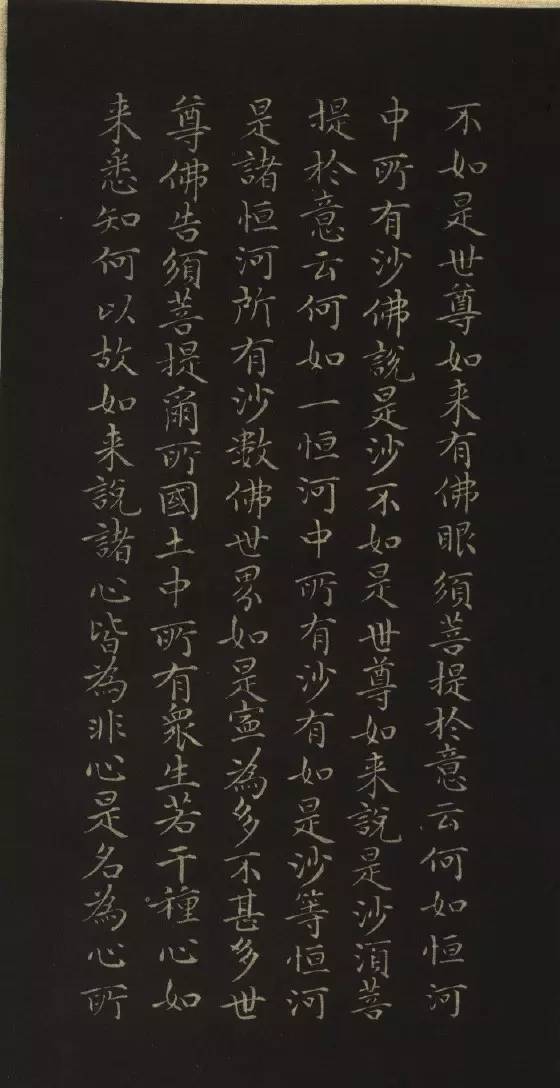 不如是世尊如来有佛眼須菩提於意云何如恒河
中所有沙佛説是沙不如是世尊如来説是沙須菩
提於意云何如一恒河中所有沙有如是沙等恒河
是諸恒河所有沙數佛世界如是寧為多不甚多世
尊佛告須菩提爾所國土中所有衆生若干種心如
来悉知何以故如来説諸心皆為非心是名為心所